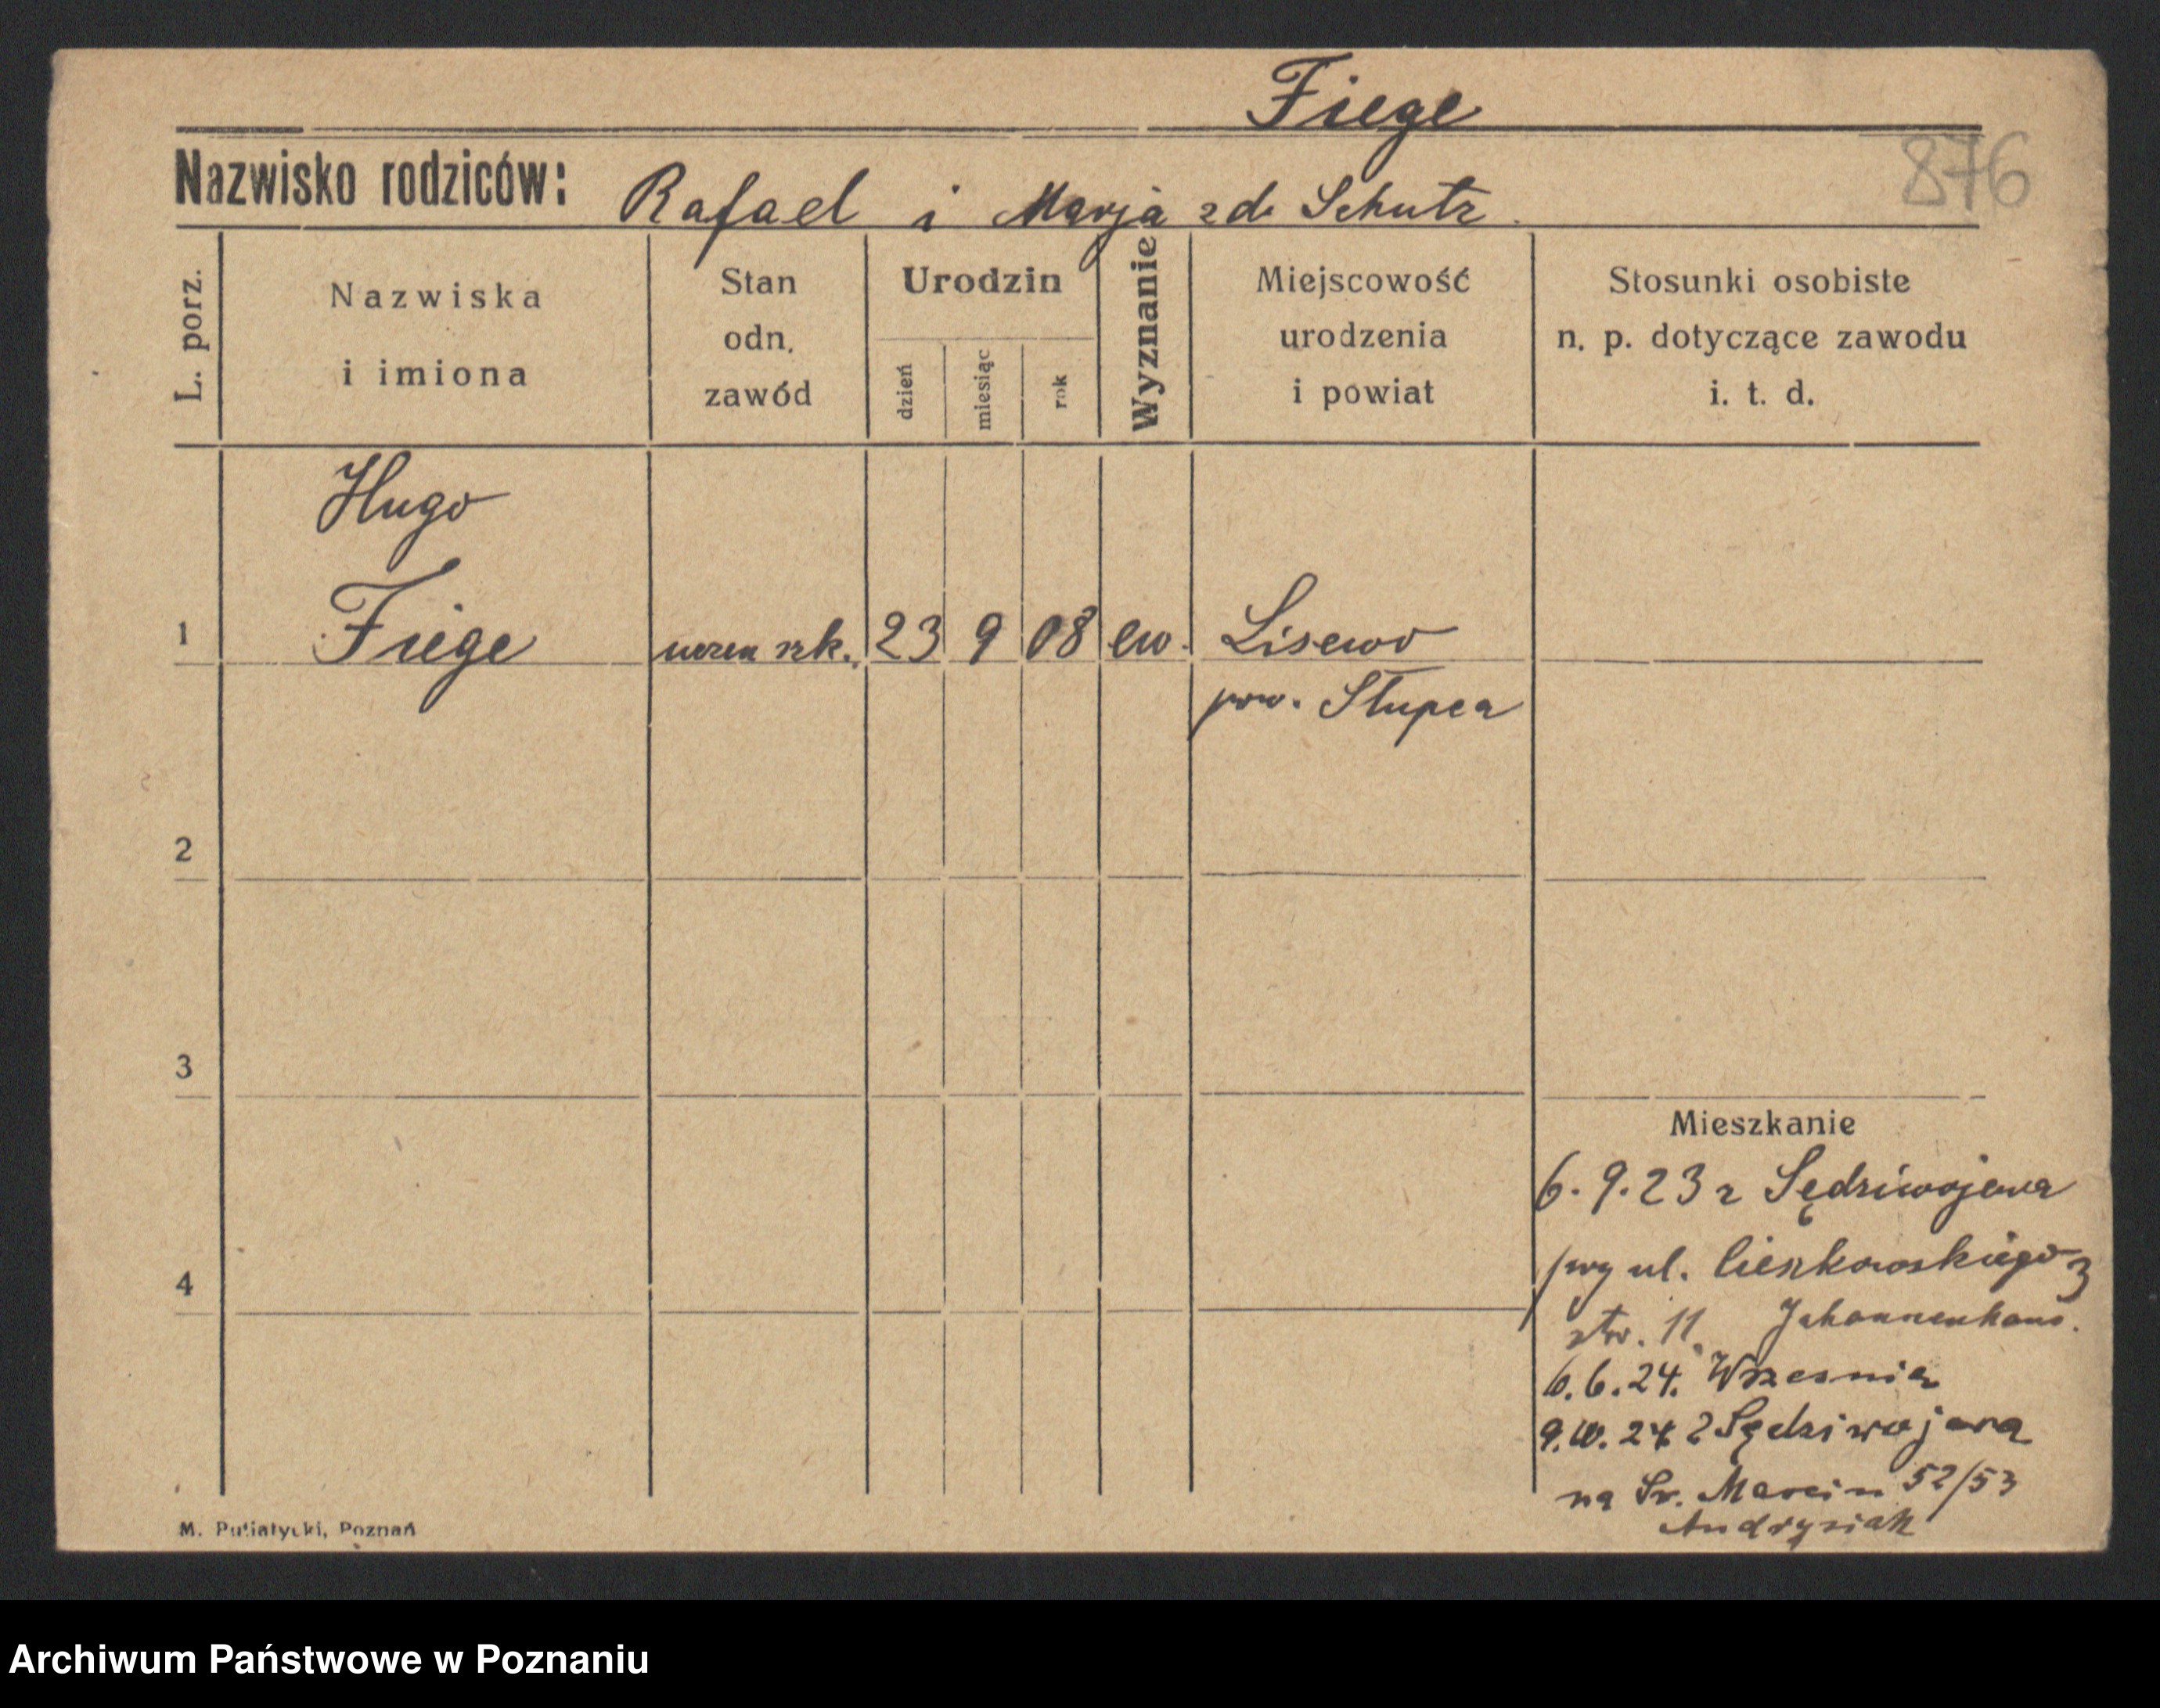 Fiege
876
Nazwisko rodziców: Rafael i Marja z d. Schutz.
L. porz.
Nazwiska
i imiona
Stan
odn.
zawód
Urodzin
dzień
miesiąc
rok
Wyznanie
Miejscowość
urodzenia
i powiat
Stosunki osobiste
n. p. dotyczące zawodu
i. t. d.
Hugo
1 Fiege uczen szk. 23 9 08 ew. Lisewo
pow. Słupca
2
3
Mieszkanie
6.9.23 z Sędziwojewa
4
przy ul. Cieszkowskiego 3
11. Johannenhaus.
6.6.24. Wrzesnia
9.10.24 z Sędziwojewa
na Św. Marcin 52/53
Andrzysiak
M. Putiatycki, Poznań
Archiwum Państwowe w Poznaniu